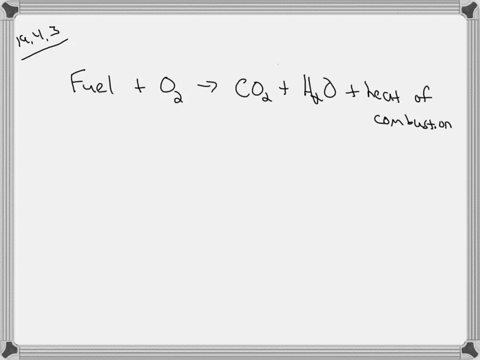 19.4.3
Fuel + O₂ → CO₂ + H₂O + heat of
combustion